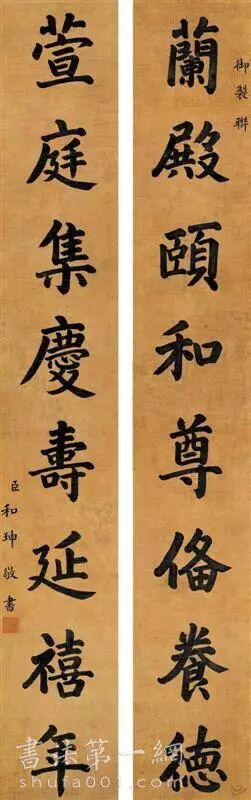 御製聯
蘭殿頤和尊俻養德
萱庭集慶壽延禧年
臣和珅敬書
書法第一網
shufa001.com